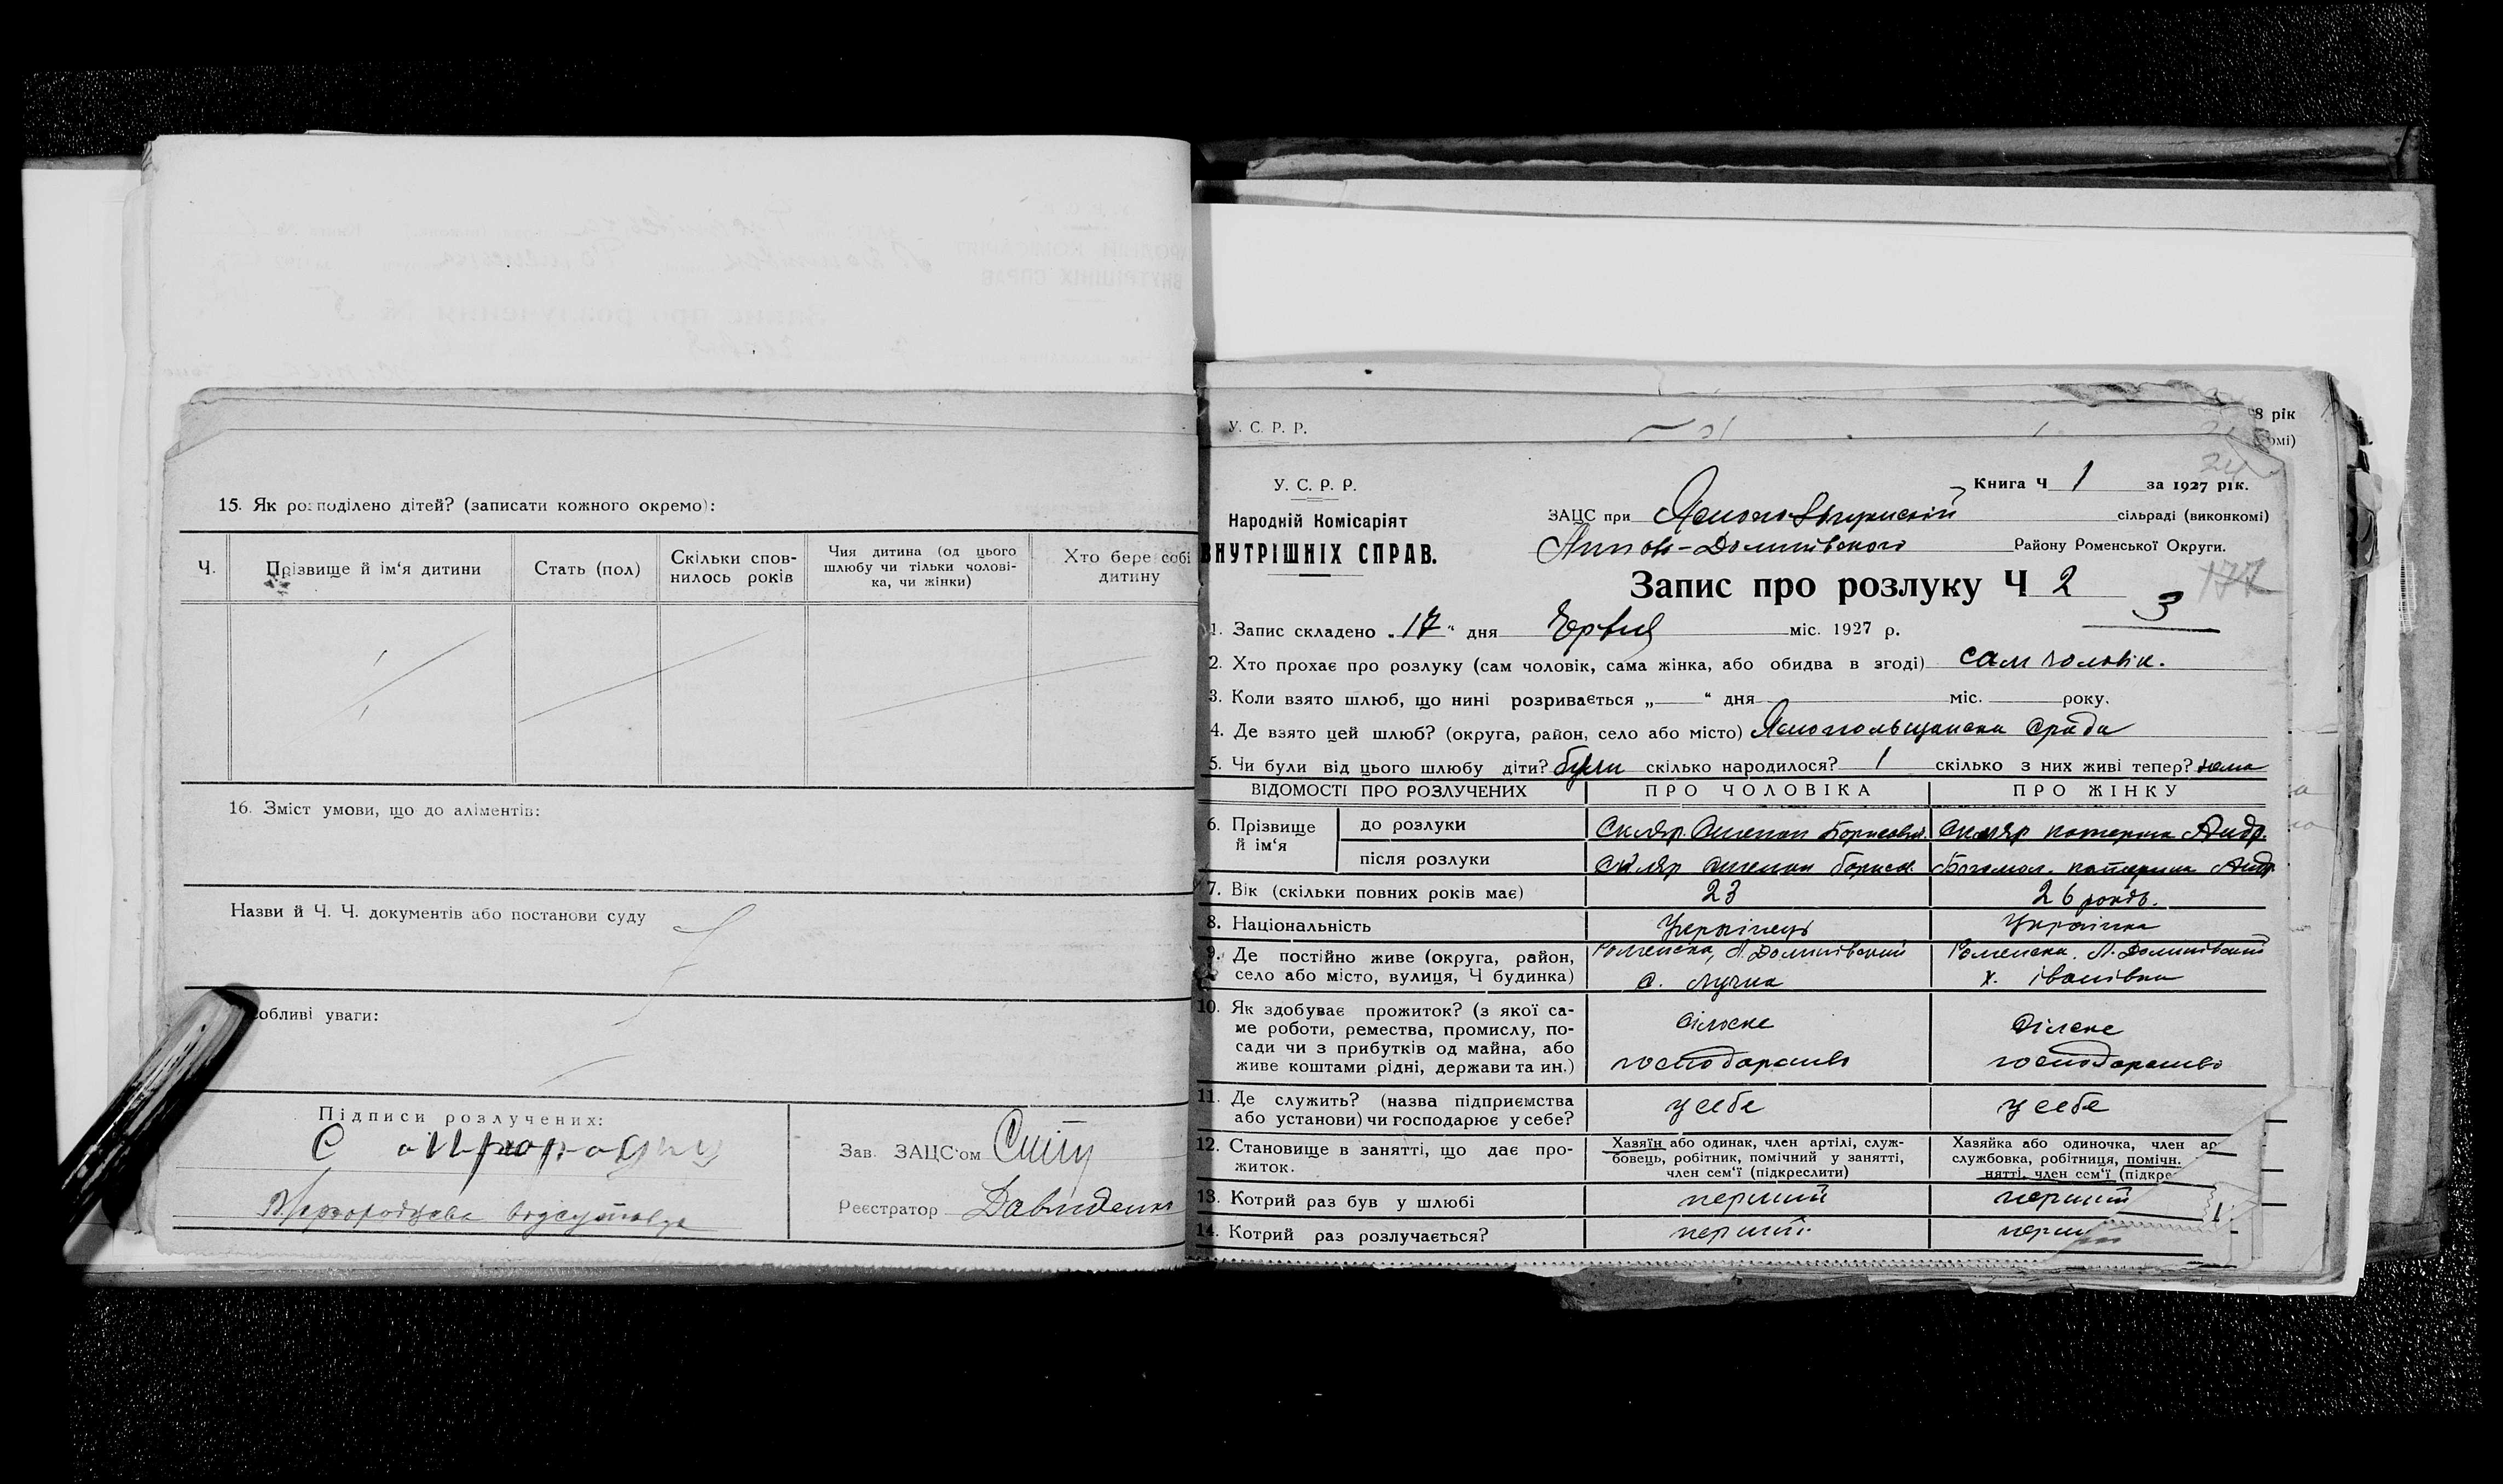 15. Як розподілено дітей? (записати кожного окремо):
Ч.
Прізвище й ім'я дитини
Стать (пол)
Скільки спов-
нилось років
Чия дитина (од цього
шлюбу чи тільки чолові-
ка, чи жінки)
Хто бере собі
дитину
16. Зміст умови, що до аліментів:
Назви й Ч. Ч. документів або постанови суду
обливі уваги:
Підписи розлучених:
Зав. ЗАЦС'ом
Реєстратор Давиденко
8 рік
омі)
У. С. Р. Р.
24
У. С. Р. Р.
Народній Комісаріят
ВНУТРІШНІХ СПРАВ.
Книга Ч 1 за 1927 рік.
ЗАЦС при сільраді (виконкомі)
Долинівського Району Роменської Округи.
Запис про розлуку Ч 2
177
3
1. Запис складено „17" дня Червня міс. 1927 р.
2. Хто прохає про розлуку (сам чоловік, сама жінка, або обидва в згоді) сам чоловік.
3. Коли взято шлюб, що нині розривається „ " дня міс. року.
4. Де взято цей шлюб? (округа, район, село або місто) Срада
5. Чи були від цього шлюбу діти? були скілько народилося? 1 скілько з них живі тепер? нема
ВІДОМОСТІ ПРО РОЗЛУЧЕНИХ ПРО ЧОЛОВІКА ПРО ЖІНКУ
6. Прізвище й ім'я
до розлуки Скляр Скляр катерина Андр.
після розлуки Скляр Богомол. катерина Андр.
7. Вік (скільки повних років має) 23 26 років.
8. Національність Українець Українка
9. Де постійно живе (округа, район,
село або місто, вулиця, Ч будинка)
Роменска, Л. Долинівский
с. Лучка
Роменска. Л. Долинівский
х. Іванівка
10. Як здобуває прожиток? (з якої са-
ме роботи, ремества, промислу, по-
сади чи з прибутків од майна, або
живе коштами рідні, держави та ин.)
сілське
господарство
сілске
господарство
11. Де служить? (назва підприємства
або установи) чи господарює у себе?
у себе
у себе
12. Становище в занятті, що дає про-
житок.
Хазяїн або одинак, член артілі, служ-
бовець, робітник, помічний у занятті,
член сем'ї (підкреслити)
Хазяйка або одиночка, член ар
службовка, робітниця, помічн.
нятті, член сем'ї (підкре
13. Котрий раз був у шлюбі перший перший
14. Котрий раз розлучається? перший перш